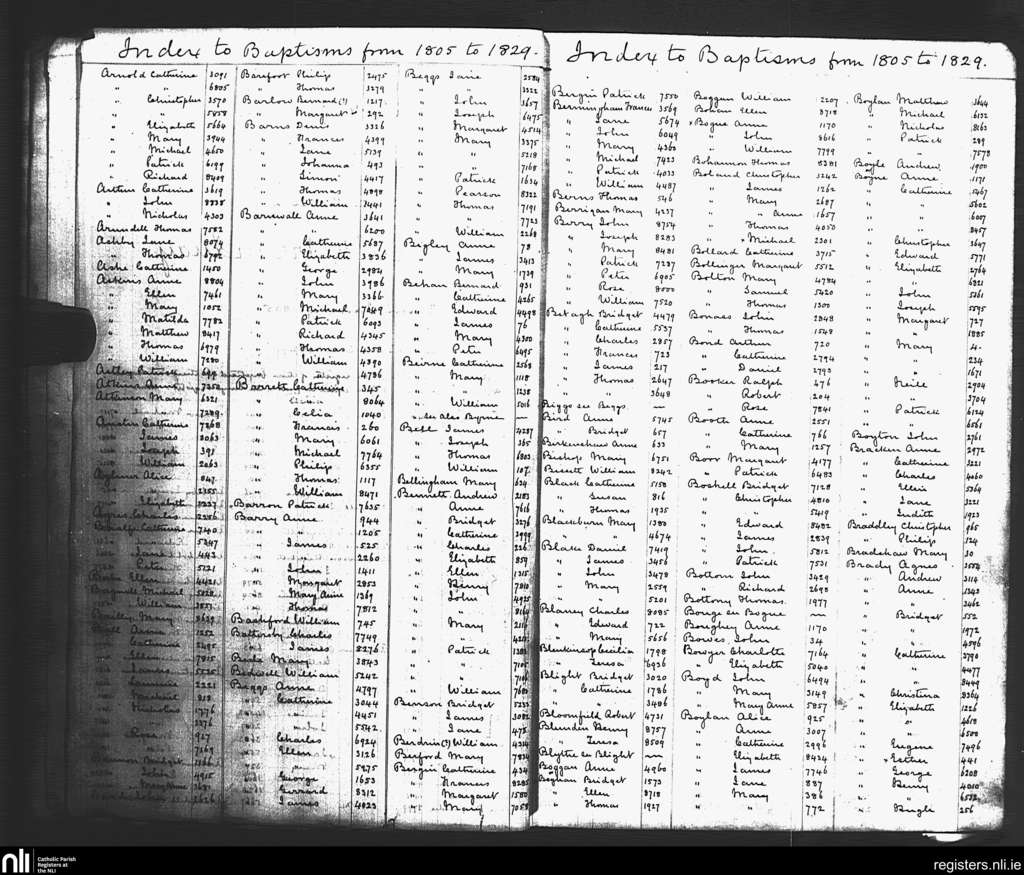 Index to Baptisms from 1805 to 1829.
Arnold Catherine 3091
" " 6805
" Christopher 3570
" " 5858
" Elizabeth 5664
" Mary 3944
" Michael 4650
" Patrick 6199
" Richard 8409
Arthur Catherine 3619
" John 8338
" Nicholas 4303
Arundell Thomas 7582
Ashby Jane 8074
" Thomas 6792
Ashe Catherine 1450
Atkins Anne 8804
" Ellen 7461
" Mary 1052
" Matilda 7782
" Matthew 8417
" Thomas 6979
" William 7280
Astley Patrick
Atkins Anne 7258
Atkinson Mary 6321
7289
Austin Catherine 7268
James 3063
Joseph 391
William 2063
Aylmer Alice 847
2355
Elizabeth 3237
Ayres Charles 2256
Catherine 740
5347
Jane 443
Peter 5121
Ellen 4421
Michael 5028
William 3851
Mary 8629
Annie 1252
Catherine 3495
Ellen 7815
Barefoot Philip 2475
" Thomas 3279
Barlow Bernard (?) 1217
" Margaret 292
Barns Denis 3326
" Frances 4399
" Jane 5139
" Johanna 493
" Simon 4417
" Thomas 4898
" William 1441
Barnwall Anne 3641
" " 6200
" Catherine 5687
" Elizabeth 3836
" George 2984
" John 3986
" Mary 3366
" Michael 7049
" Patrick 6093
" Richard 4345
" Thomas 4358
" William 4396
4786
Barrett Catherine 345
8064
" Celia 1040
" Francis 260
" Mary 6061
" Michael 7764
" Philip 6355
" Thomas 1117
" William 8471
Barron Patrick 7635
Barry Anne 944
" " 1205
" James 525
" " 2260
" John 1411
" Margaret 2853
" Mary Anne 1369
" Thomas 7812
Bashford William 745
Battersby Charles 7749
" James 8276
Beale Mary 3843
Bedwell William 5242
Beggs Anne 4797
" Catherine 3044
4451
5542
" Charles 6924
" Ellen 3126
5275
George 1653
Gerrard 8312
James 4023
Beggs Jane 2584
" " 3322
" John 3657
" Joseph 6475
" Margaret 4514
" Mary 3375
" " 5218
" " 7168
" Patrick 1634
" Pearson 8322
" Thomas 7191
" " 7723
" William 2268
Begley Anne 78
" James 3413
" Mary 1739
Behan Bernard 931
" Catherine 4265
" Edward 4498
" James 76
" Mary 4300
" Peter 6495
Beirne Catherine 2568
" Mary 1118
" " 1238
" William 5016
" see also Byrne —
Bell James 4287
" Joseph 365
" Thomas 6803
" William 107
Bellingham Mary 634
Bennett Andrew 2183
" Anne 7616
" Bridget 3276
" Catherine 3999
" Charles 226
" Elizabeth 859
" Ellen 1315
" Henry 7810
" John 4925
" " 8164
" Mary 211
" " 4215
" Patrick
" " 7105
" "
" William 7680
Benson Bridget 5233
" James 3082
" Jane 475
Berdrin (?) William 4314
Berford Mary 7834
Bergin Catherine 434
" Frances 8285
" Margaret 1580
" Mary 7058
Index to Baptisms from 1805 to 1829.
Bergin Patrick 7550
Bermingham Frances 3569
" Jane 5674
" John 6049
" Mary 4363
" Michael 7423
" Patrick 4033
" William 4487
Berns Thomas 546
Berrigan Mary 4237
Berry John 8754
" Joseph 8283
" Mary 8481
" Patrick 7287
" Peter 6905
" Rose 8000
" William 7520
Betagh Bridget 4479
" Catherine 5537
" Charles 2857
" Frances 723
" James 217
" Thomas 2647
" " 3648
Biggs see Beggs —
Bird Anne 5745
" Bridget 657
Birkenshaw Anne 633
Bishop Mary 6751
Bissett William 8342
Black Catherine 5158
" Susan 816
" Thomas 1935
Blackburn Mary 1380
" " 4674
Blake Daniel 7419
" James 3456
" John 3478
" Mary 2559
" " 5201
Blaney Charles 8085
" Edward 722
" Mary 5656
Blenkinsop Cecilia 1798
" Teresa 6936
Blight Bridget 3020
" Catherine 1786
" " 3486
Bloomfield Robert 4731
Blunden Henry 8757
" Teresa 8509
Blythe see Blight —
Boggan Anne 4960
Boghan Bridget 1573
" Ellen 8718
" Thomas 1927
Boggan William 2207
Bohan Ellen 8718
Bogue Anne 1170
" John 8616
" William 7799
Bohannon Thomas 8381
Boland Christopher 3242
" James 1262
" Mary 2687
" " Anne 1657
" Thomas 4050
" Michael 2301
Bollard Catherine 3715
Bollinger Margaret 5512
Bolton Mary 4784
" Samuel 5420
" Thomas 1300
Bonass John 2848
" Thomas 1548
Bond Arthur 720
" Catherine 2794
" Daniel 2793
Booker Ralph 476
" Robert 204
" Rose 7841
Booth Anne 2551
" Catherine 766
" Mary 1257
Boor Margaret 4177
" Patrick 6483
Boshell Bridget 7128
" Christopher 4810
" " 5419
" Edward 8482
" James 2839
" John 5812
" Patrick 7531
Bottom John 3429
" Richard 2698
Bottomy Thomas 1977
Bouge see Bogue —
Boughey Anne 1170
Bowes John 34
Bowyer Charlotte 7164
" Elizabeth 5040
Boyd John 6494
" Mary 3149
" Mary Anne 5857
Boylan Alice 925
" Anne 3007
" Catherine 2996
" Elizabeth 8434
" James 7746
" Jane 887
" Mary 386
" " 772
Boylan Matthew 3644
" Michael 6132
" Nicholas 8163
" Patrick 289
" " 7578
Boyle Andrew 1900
Boyne Anne 1171
" Catherine 5467
" " 5602
" " 6007
" " 8457
" Christopher 3647
" Edward 5771
" Elizabeth 2764
" " 6821
" John 5061
" Joseph 5595
" Margaret 727
" " 1885
" Mary 4
" " 234
" " 1671
" Neile 2904
" " 3704
" Patrick 6124
" " 6561
Boyton John 2761
Bracken Anne 2972
" Catherine 3221
" Charles 4060
" Ellen 5364
" Jane 3221
" Judith 1923
Braddley Christopher 965
" Philip 124
Bradshaw Mary 30
Brady Agnes 3554
" Andrew 3114
" Anne 1343
" " 3462
" Bridget 552
" " 1972
" " 4596
" Catherine 3790
" " 4477
" " 8449
" Christina 8364
" Elizabeth 1226
" " 4618
" " 6500
" Eugene 7496
" Esther 441
" George 6208
" Henry 4010
" " 6532
" Hugh 256
nli
Catholic Parish
Registers at
the NLI
registers.nli.ie